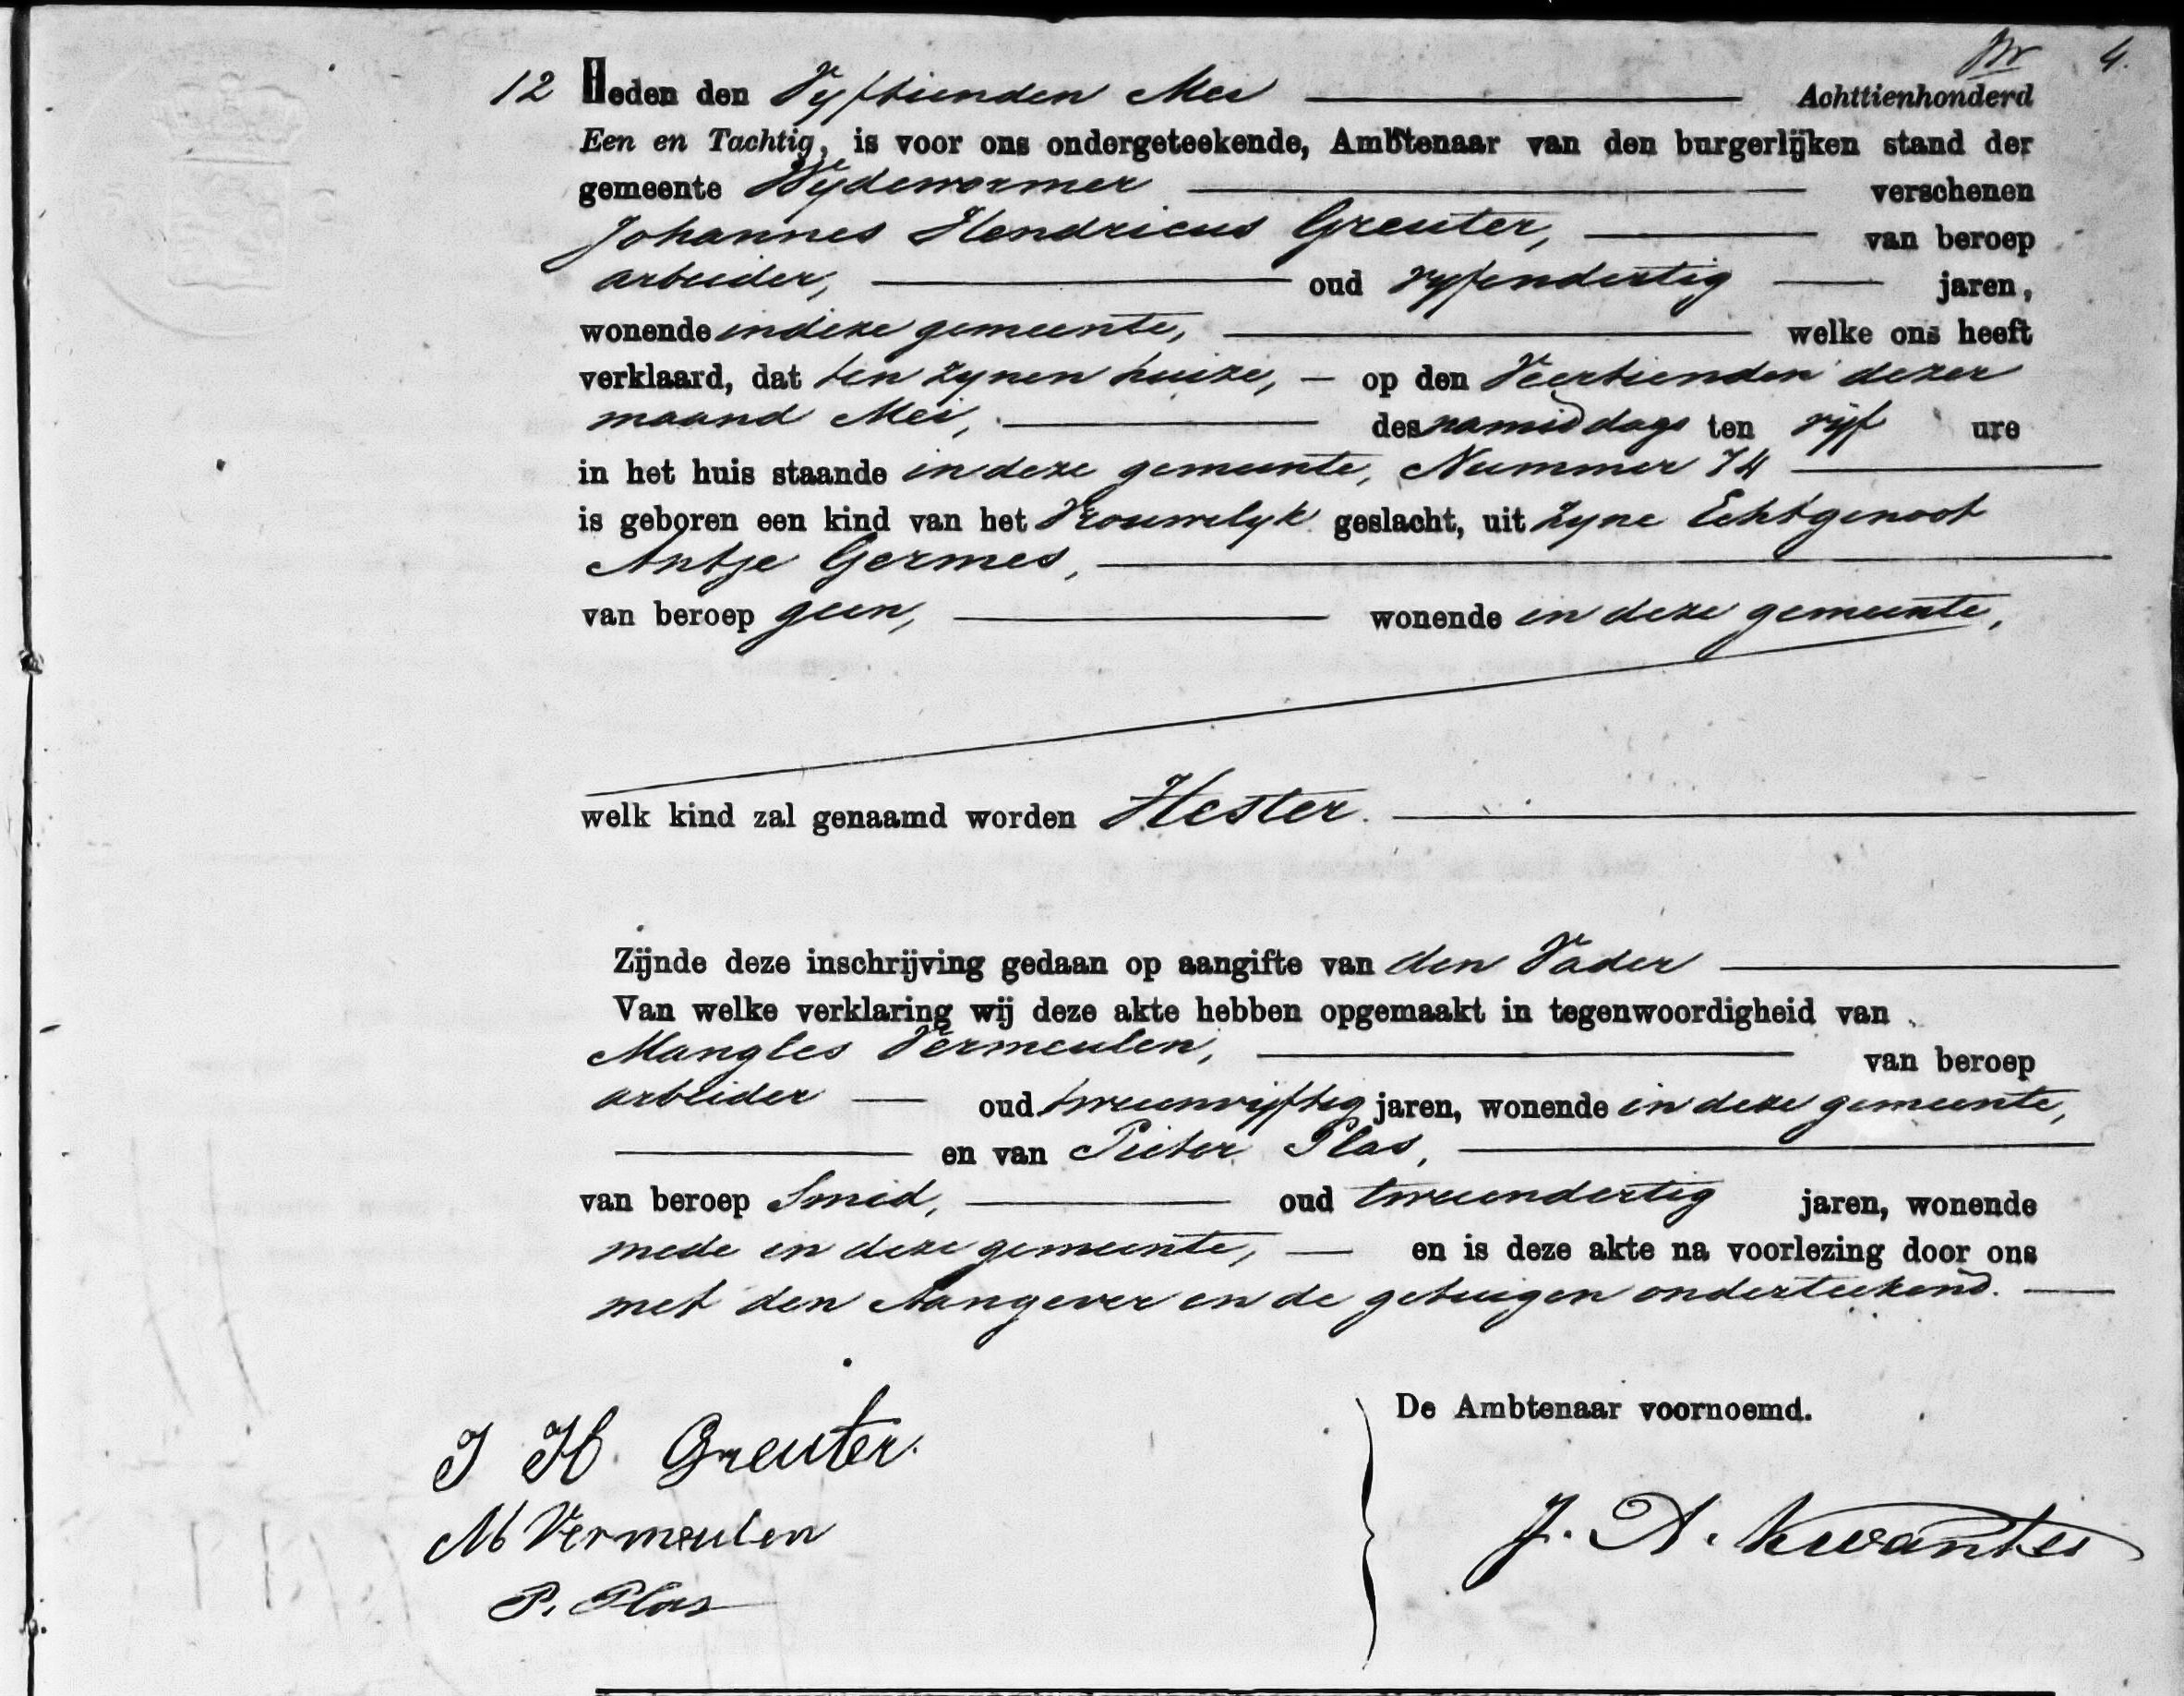 4.
12 Heden den Vyftienden Mei Achttienhonderd
Een en Tachtig, is voor ons ondergeteekende, Ambtenaar van den burgerlijken stand der
gemeente Wydewormer verschenen
Johannes Hendricus Greuter, van beroep
arbeider, oud vyfendertig jaren,
wonende in deze gemeente, welke ons heeft
verklaard, dat ten zynen huize, op den Veertienden dezer
maand Mei, des namiddags ten vijf ure
in het huis staande in deze gemeente, Nummer 74
is geboren een kind van het Vrouwelyk geslacht, uit zyne Echtgenoot
Antje Germes,
van beroep geen, wonende in deze gemeente,
welk kind zal genaamd worden Hester.
Zijnde deze inschrijving gedaan op aangifte van den Vader
Van welke verklaring wij deze akte hebben opgemaakt in tegenwoordigheid van
Mangles Vermeulen, van beroep
arbeider oud tweenvijftig jaren, wonende in deze gemeente,
en van Pieter Plas,
van beroep Smid, oud tweendertig jaren, wonende
mede in deze gemeente, en is deze akte na voorlezing door ons
met den Aangever en de getuigen onderteekend.
De Ambtenaar voornoemd.
J H. Greuter.
M Vermeulen
P. Plas
J. A. Kwantes